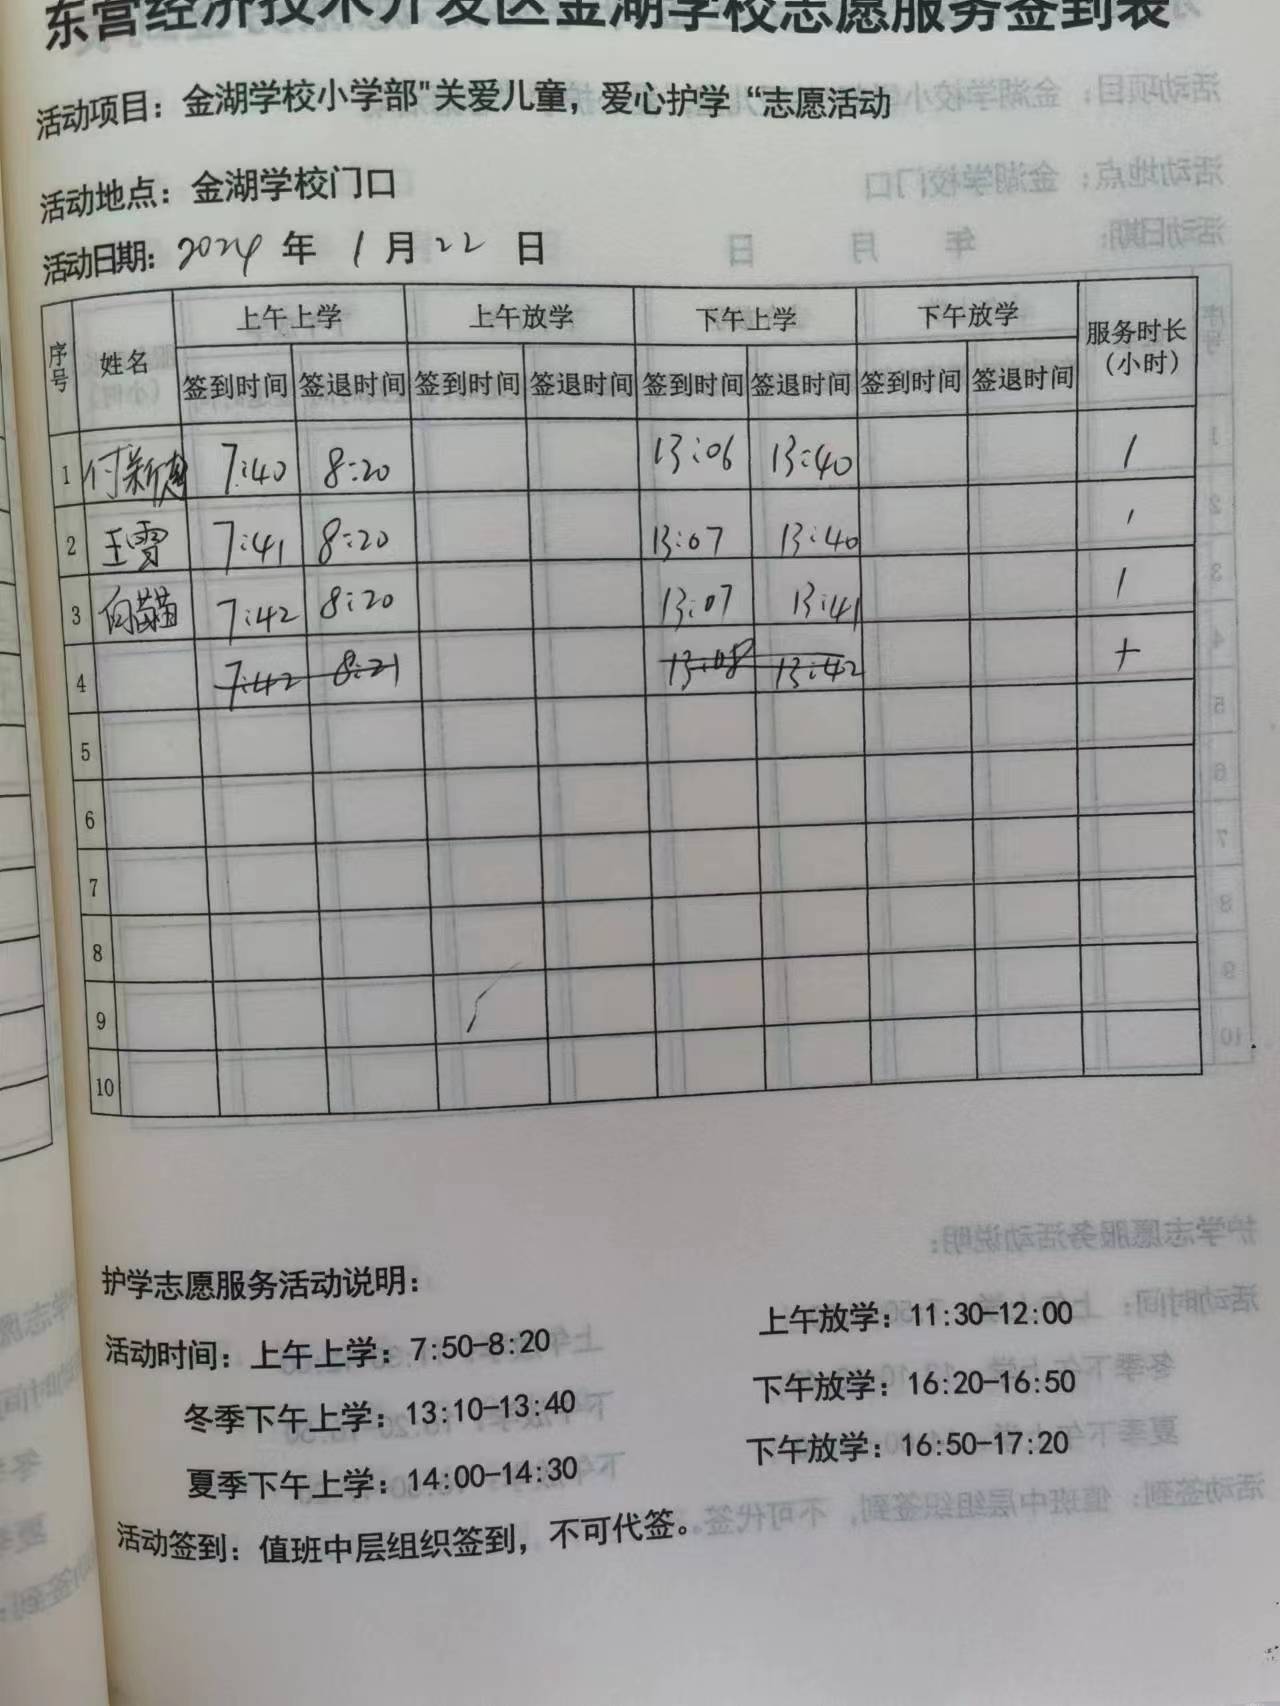 东营经济技术开发区金湖学校志愿服务签到表
活动项目：金湖学校小学部"关爱儿童，爱心护学“志愿活动
活动地点：金湖学校门口
活动日期：2024 年 1 月 22 日
序号 姓名 上午上学 上午放学 下午上学 下午放学 服务时长（小时）
签到时间 签退时间 签到时间 签退时间 签到时间 签退时间 签到时间 签退时间
1 付新 7:40 8:20 13:06 13:40 1
2 王雪 7:41 8:20 13:07 13:40 1
3 向苗苗 7:42 8:20 13:07 13:41 1
4 7:42 8:21 13:08 13:42
5
6
7
8
9
10
护学志愿服务活动说明：
活动时间：上午上学：7:50-8:20 上午放学：11:30-12:00
冬季下午上学：13:10-13:40 下午放学：16:20-16:50
夏季下午上学：14:00-14:30 下午放学：16:50-17:20
活动签到：值班中层组织签到，不可代签。